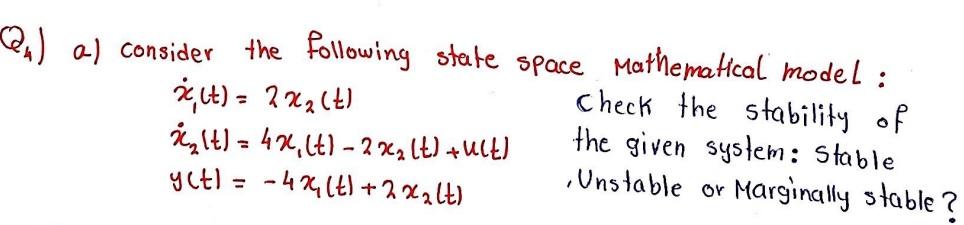 Q4) a) consider the following state space Mathematical model :
ẋ₁(t) = 2x₂(t)
ẋ₂(t) = 4x₁(t) - 2x₂(t) + u(t)
y(t) = -4x₁(t) + 2x₂(t)
check the stability of
the given system: Stable
, Unstable or Marginally stable ?